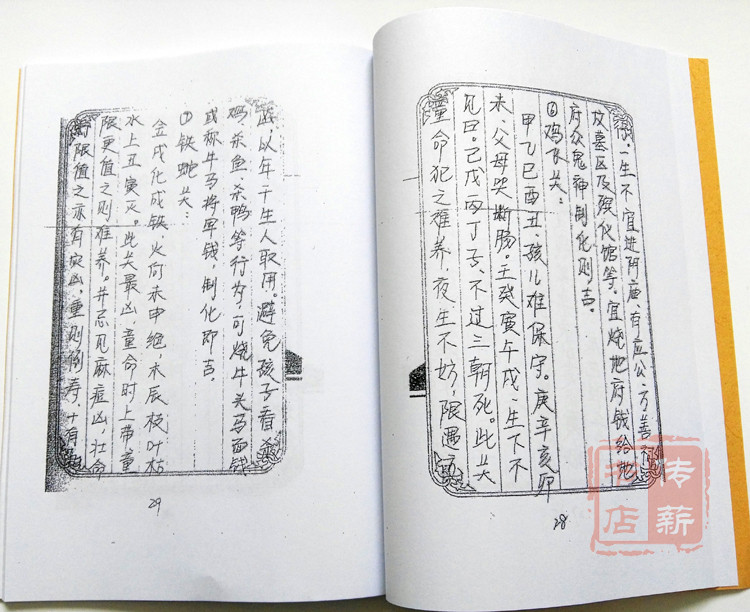 一生不宜进阴庙，有应公、万善
坟墓区及殡仪馆等。宜烧地府钱给地
府众鬼神制化则吉。
⑥鸡飞关：
甲乙巳酉丑，孩儿难保守。庚辛亥卯
未，父母哭断肠。壬癸寅午戌，生下不
见日。己戊丙丁子，不过三朝死。此关
童命犯之难养，夜生不妨，限遇
28
以年干生人取用。避免孩子看杀
鸡、杀鱼、杀鸭等行为，可烧牛头马面钱
或称牛马将军钱，制化即吉。
⑦铁蛇关：
金戌化成铁，火向未申绝，木辰枝叶枯
水上丑寅灭。此关最凶，童命时上带童
限更值之则难养。并忌见麻痘凶，壮命
限值之亦有灾凶，重则倒寿，十有
29
传薪
老店